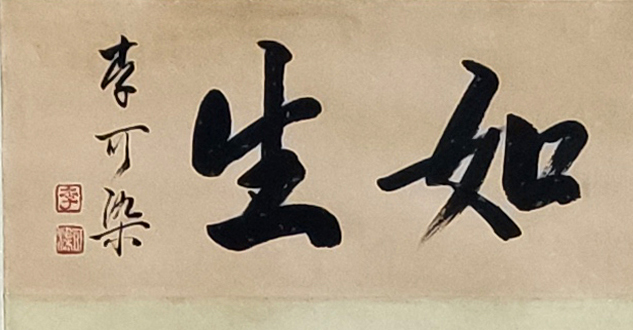 如生
李可染
李